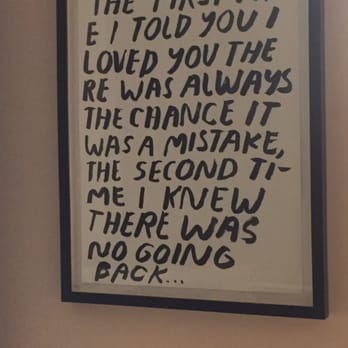 THE FIRST TIM
E I TOLD YOU I
LOVED YOU THE
RE WAS ALWAYS
THE CHANCE IT
WAS A MISTAKE,
THE SECOND TI-
ME I KNEW
THERE WAS
NO GOING
BACK...